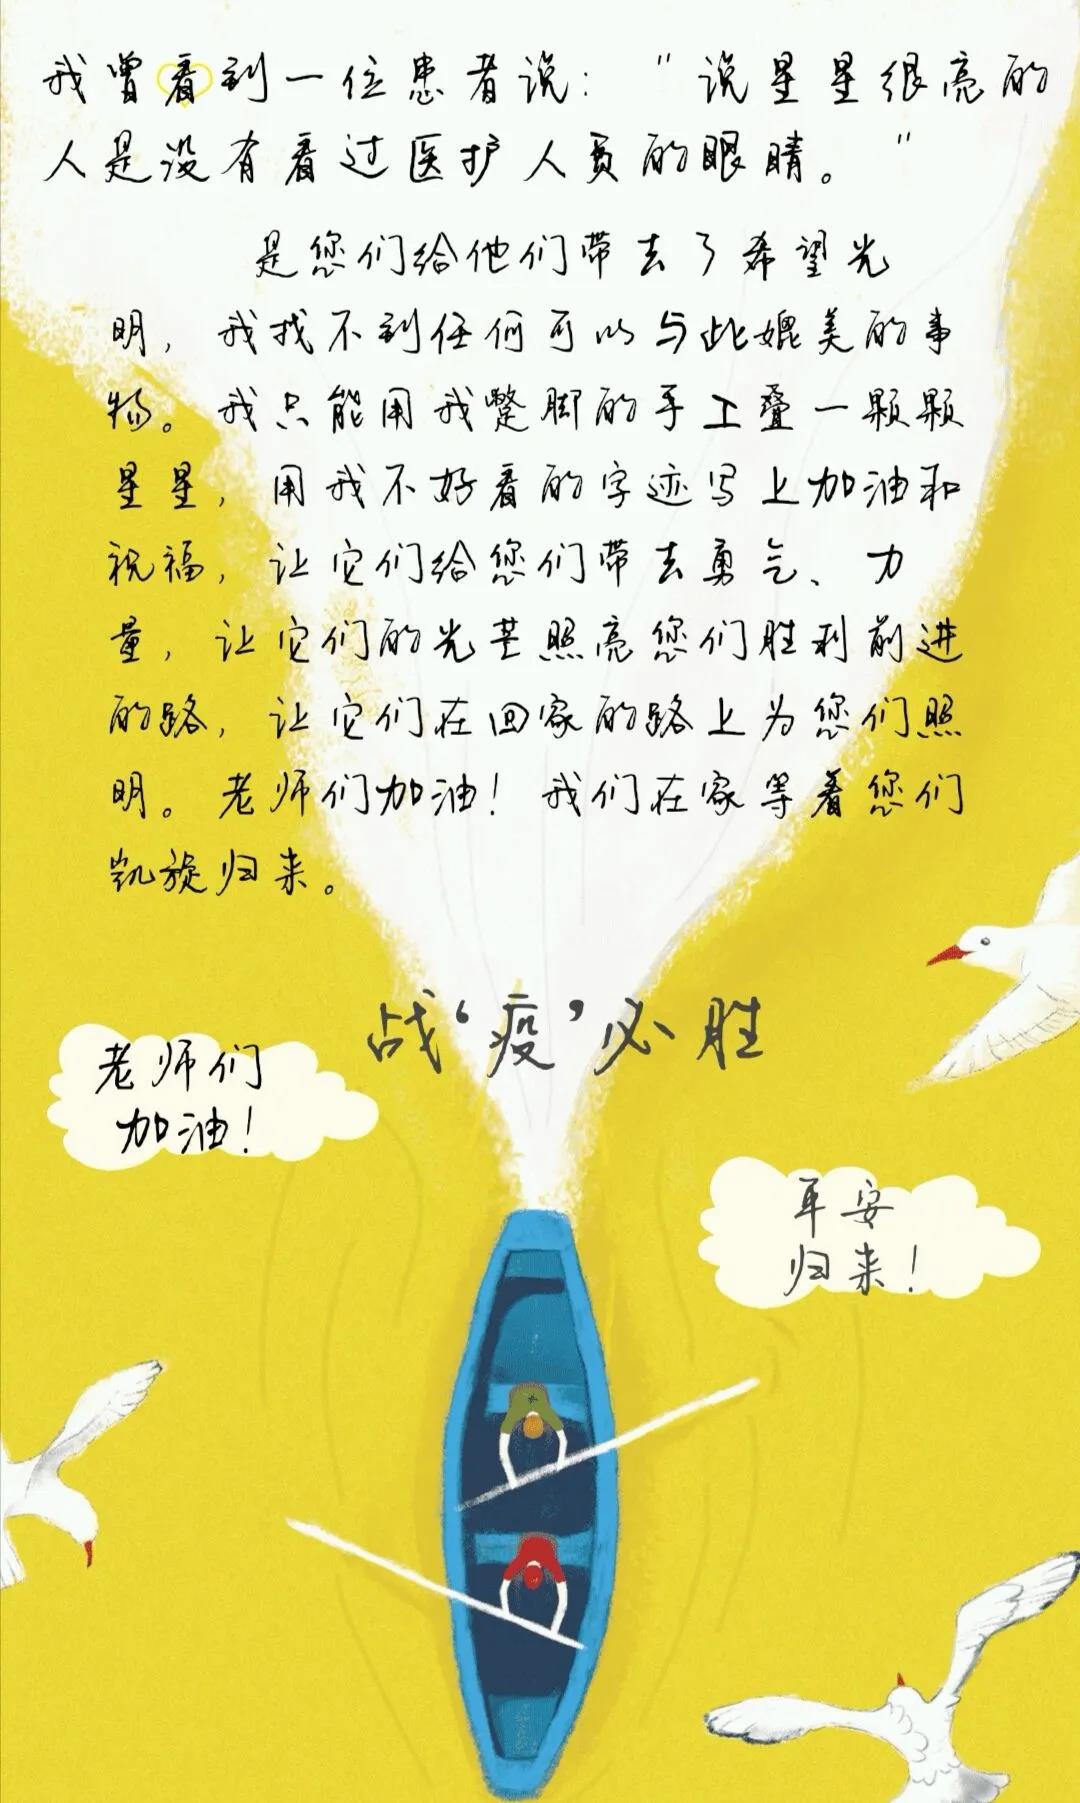 我曾看到一位患者说："说星星很亮的
人是没有看过医护人员的眼睛。"
是您们给他们带去了希望光
明，我找不到任何可以与此媲美的事
物。我只能用我蹩脚的手工叠一颗颗
星星，用我不好看的字迹写上加油和
祝福，让它们给您们带去勇气、力
量，让它们的光芒照亮您们胜利前进
的路，让它们在回家的路上为您们照
明。老师们加油！我们在家等着您们
凯旋归来。
战‘疫’必胜
老师们
加油！
平安
归来！